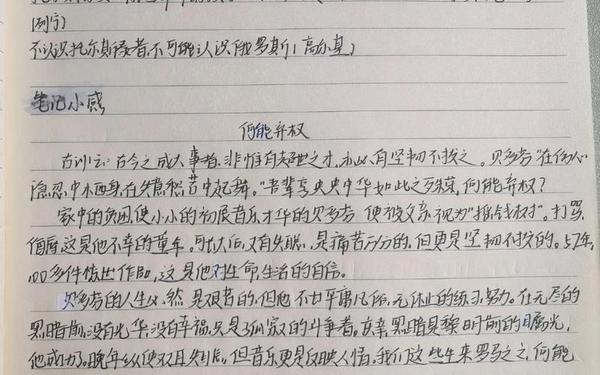 列宁)
不认识托尔斯泰者,不可能认识俄罗斯(高尔基)
笔记小感
何能弃权
古训云:古今之成大事者,非惟有超世之才,亦必有坚韧不拔之。贝多芬"在伤心
隐忍中小栖身,在失意愁苦中起舞。"吾辈享泱泱中华如此之殊荣,何能弃权?
家中的贫困,使小小的初展音乐才华的贝多芬 便被父亲视为"摇钱树"。打骂、
借宿这是他不幸的童年。可长大后,双耳失聪,是痛苦万分的,但更是坚韧不拔的。57年,
100多件传世作品,这是他对生命、生活的自信。
贝多芬的人生必然是艰苦的,但他不甘平庸凡俗,无休止的练习努力。在无尽的
黑暗前,没有光华,没有幸福,只是孤寂的斗争者。在亲黑暗见黎明前的曙光,
他成功了。晚年纵使双耳失聪,但音乐更是反映人情,我们这些生来罗马之,何能